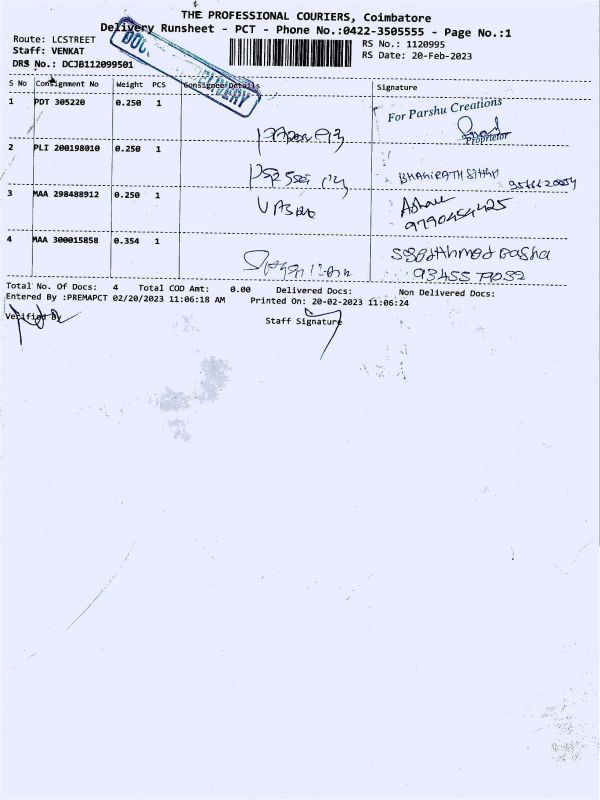 THE PROFESSIONAL COURIERS, Coimbatore
Delivery Runsheet - PCT - Phone No.:0422-3505555 - Page No.:1
Route: LCSTREET
RS No.: 1120995
Staff: VENKAT
RS Date: 20-Feb-2023
DRS No.: DCJB112099501
DELIVERY
S No Consignment No Weight PCS Consignee Details Signature
1 PDT 305220 0.250 1
For Parshu Creations
Proprietor
2 PLI 200198010 0.250 1
BHAGIRATH SINGH
3 MAA 298488912 0.250 1
9790454425
4 MAA 300015858 0.354 1
Syed Ahmed Basha
Total No. Of Docs: 4 Total COD Amt: 0.00 Delivered Docs: Non Delivered Docs:
Entered By :PREMAPCT 02/20/2023 11:06:18 AM Printed On: 20-02-2023 11:06:24
Verified By
Staff Signature